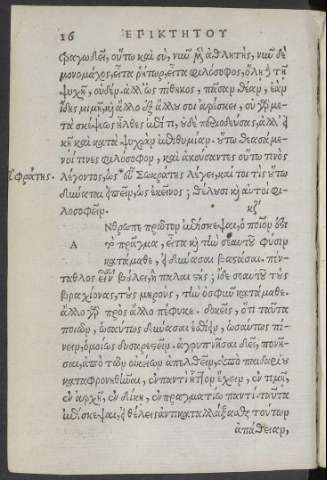 16 ΕΠΙΚΤΗΤΟΥ
τραγῳδεῖν, οὕτω καὶ σὺ, νῦν μὲν ἀθλητὴς, νῦν δὲ
μονομάχος, εἶτα ῥήτωρ, εἶτα φιλόσοφος, ὅλῃ δὲ τῇ
ψυχῇ, οὐδέν. ἀλλ' ὡς πίθηκος, πᾶσαν θέαν, ἣν ἂν
ἴδῃς μιμῇ, καὶ ἄλλο ἐξ ἄλλου σοι ἀρέσκει, οὐ γὰρ με-
τὰ σκέψεως ἦλθες ἐπί τι, οὐδὲ περιοδεύσας, ἀλλ' εἰ-
κῆ καὶ κατὰ ψυχρὰν ἐπιθυμίαν. οὕτω θεασάμε-
νοί τινες φιλόσοφον, καὶ ἀκούσαντες οὕτω τινὸς
Εὐφράτης. λέγοντος, ὡς εὖ Σωκράτης λέγει, καί τοι τίς οὕτω
δύναται εἰπεῖν, ὡς ἐκεῖνος; θέλουσι καὶ αὐτοὶ φι-
λοσοφεῖν. κζʹ
Α Νθρωπε πρῶτον ἐπίσκεψαι, ὁποῖόν ἐστι
τὸ πρᾶγμα, εἶτα καὶ τὴν σεαυτοῦ φύσιν
κατάμαθε, εἰ δύνασαι βαστάσαι. πέν-
ταθλος εἶναι βούλει, ἢ παλαιστής; ἴδε σεαυτοῦ τοὺς
βραχίονας, τοὺς μηροὺς, τὴν ὀσφῦν κατάμαθε.
ἄλλο γὰρ πρὸς ἄλλο πέφυκε. δοκεῖς, ὅτι ταῦτα
ποιῶν, ὡσαύτως δύνασαι ἐσθίειν, ὡσαύτως πί-
νειν, ὁμοίως δυσαρεστεῖν. ἀγρυπνῆσαι δεῖ, πονῆ-
σαι, ἀπὸ τῶν οἰκείων ἀπελθεῖν, ὑπὸ παιδαρίου
καταφρονηθῆναι, ἐν παντὶ ἧττον ἔχειν, ἐν τιμῇ,
ἐν ἀρχῇ, ἐν δίκῃ, ἐν πραγματίῳ παντί. ταῦτα
ἐπίσκεψαι, εἰ θέλεις ἀντικαταλλάξασθαι τούτων
ἀπάθειαν,